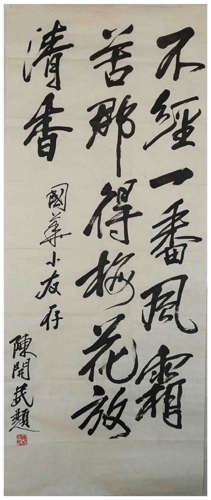 不經一番風霜
苦那得梅花放
清香
國華小友存
陳開民題